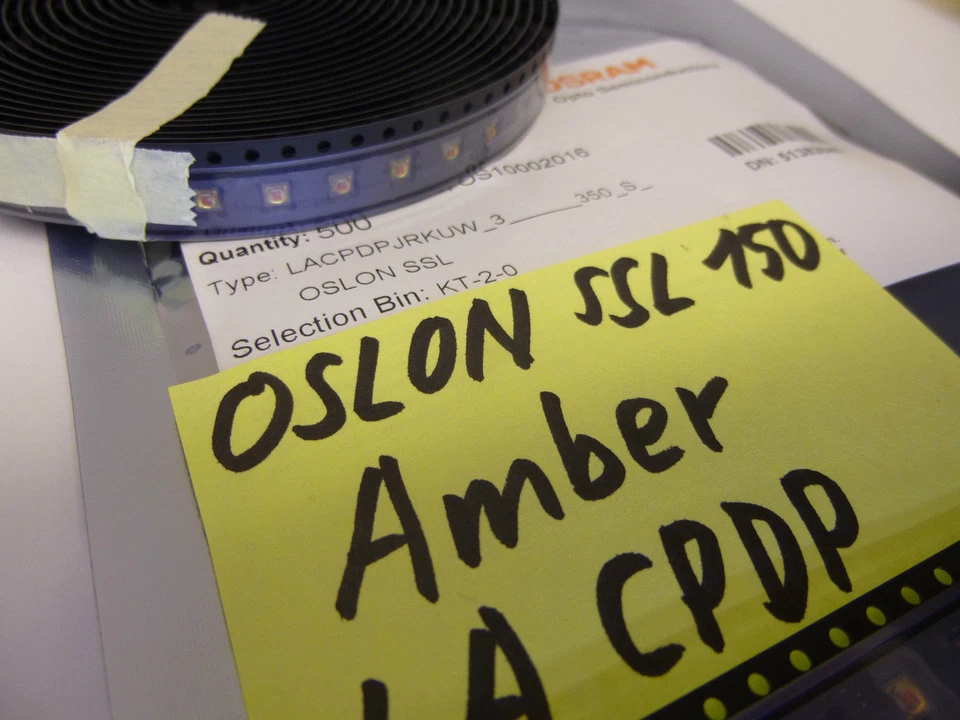 OSRAM
Opto Semiconductors
OS10002016
Quantity: 500
Type: LACPDPJRKUW_3______350_S_
OSLON SSL
Selection Bin: KT-2-0
OSLON SSL 150
Amber
LA CPDP